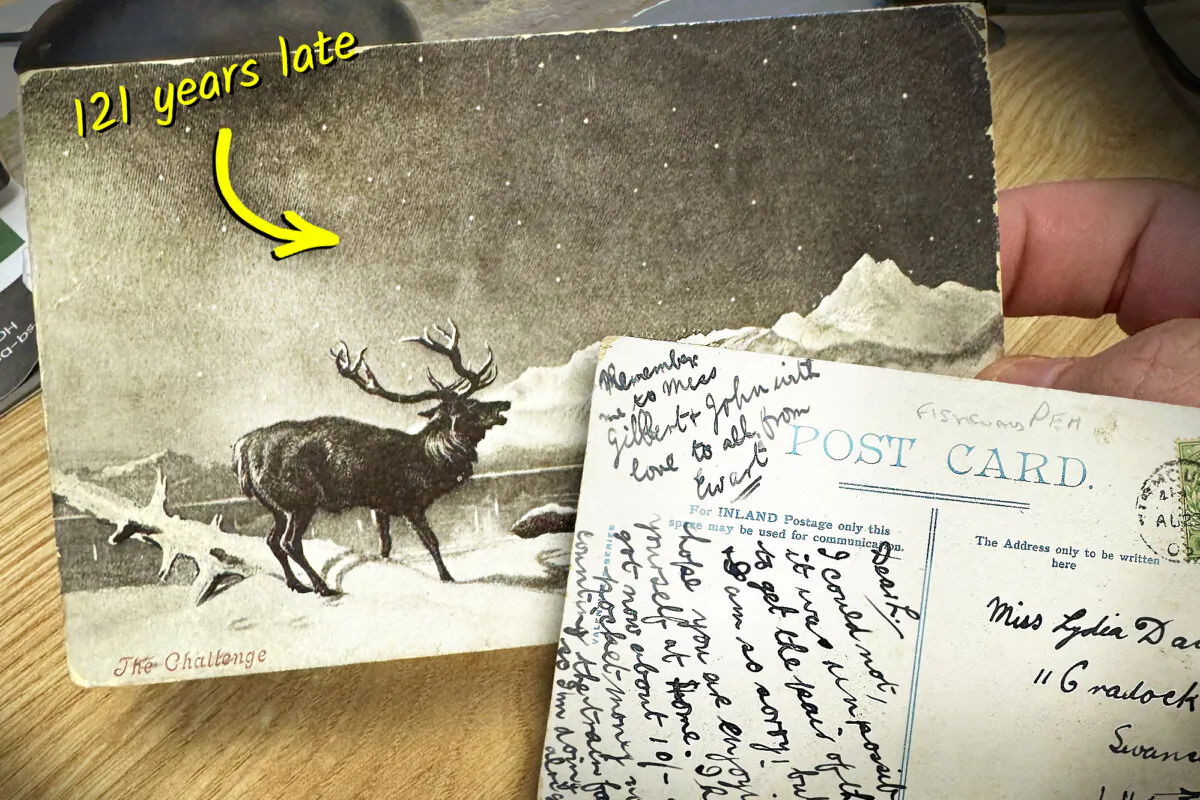 121 years late
The Challenge
Remember
me to Miss
Gilbert & John with
love to all from
Ewart
POST CARD.
For INLAND Postage only this
space may be used for communication.
The Address only to be written
here
Miss Lydia Da
11 Cradock
Swans
Dear L.
I could not,
it was impossib
to get the pair of th
I am so sorry! but
hope you are enjoyi
yourself at home. I h
got now about 10/-
pocket money n
counting the train fa
so I'm doing
SERIES